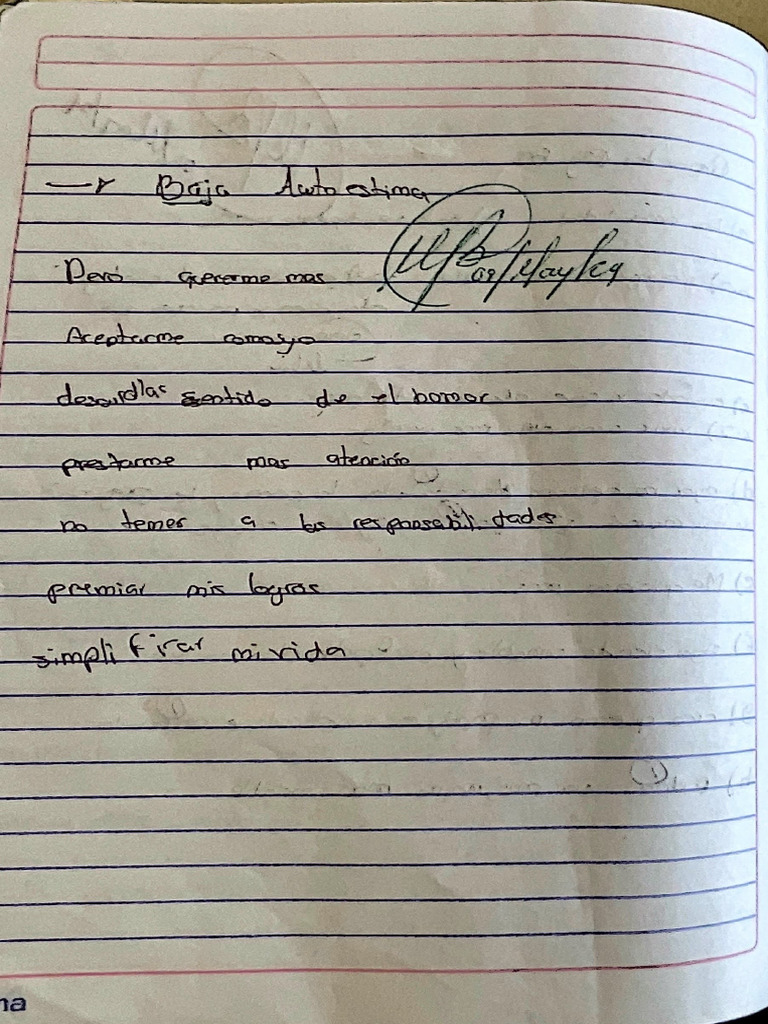 → Baja Autoestima
Peró quererme mas 09/May/29
Aceptarme como yo
desarrollar sentido de el homor
prestarme mas atención
no temer a las responsabilidades
premiar mis logros
simplificar mi vida
na